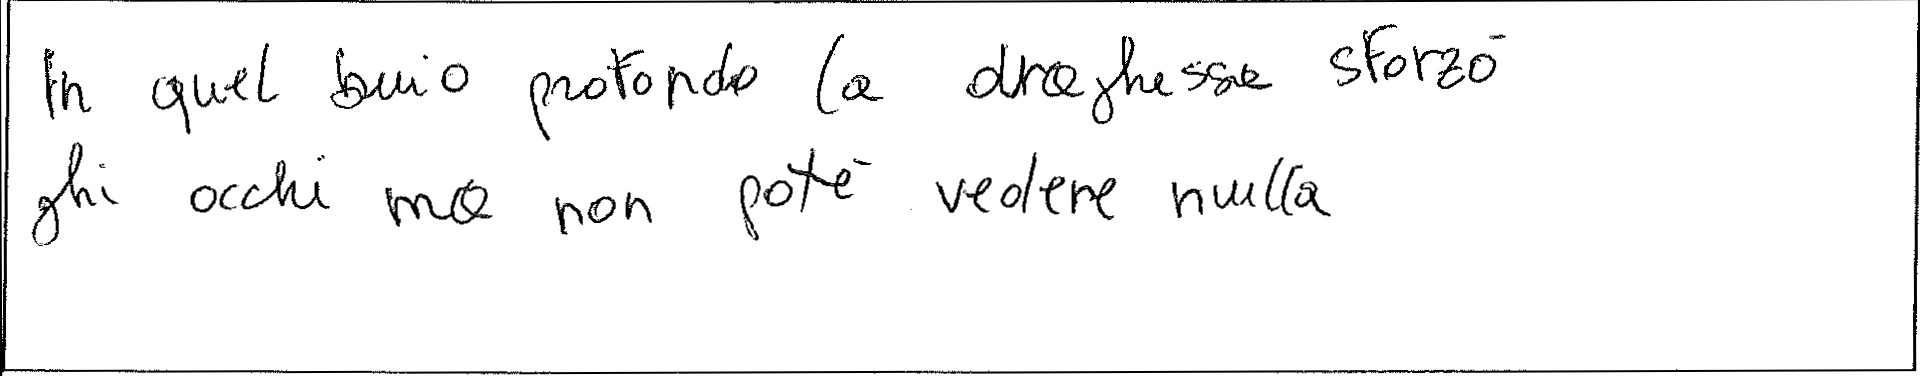 In quel buio profondo la draghessa sforzò
ghi occhi ma non poté vedere nulla